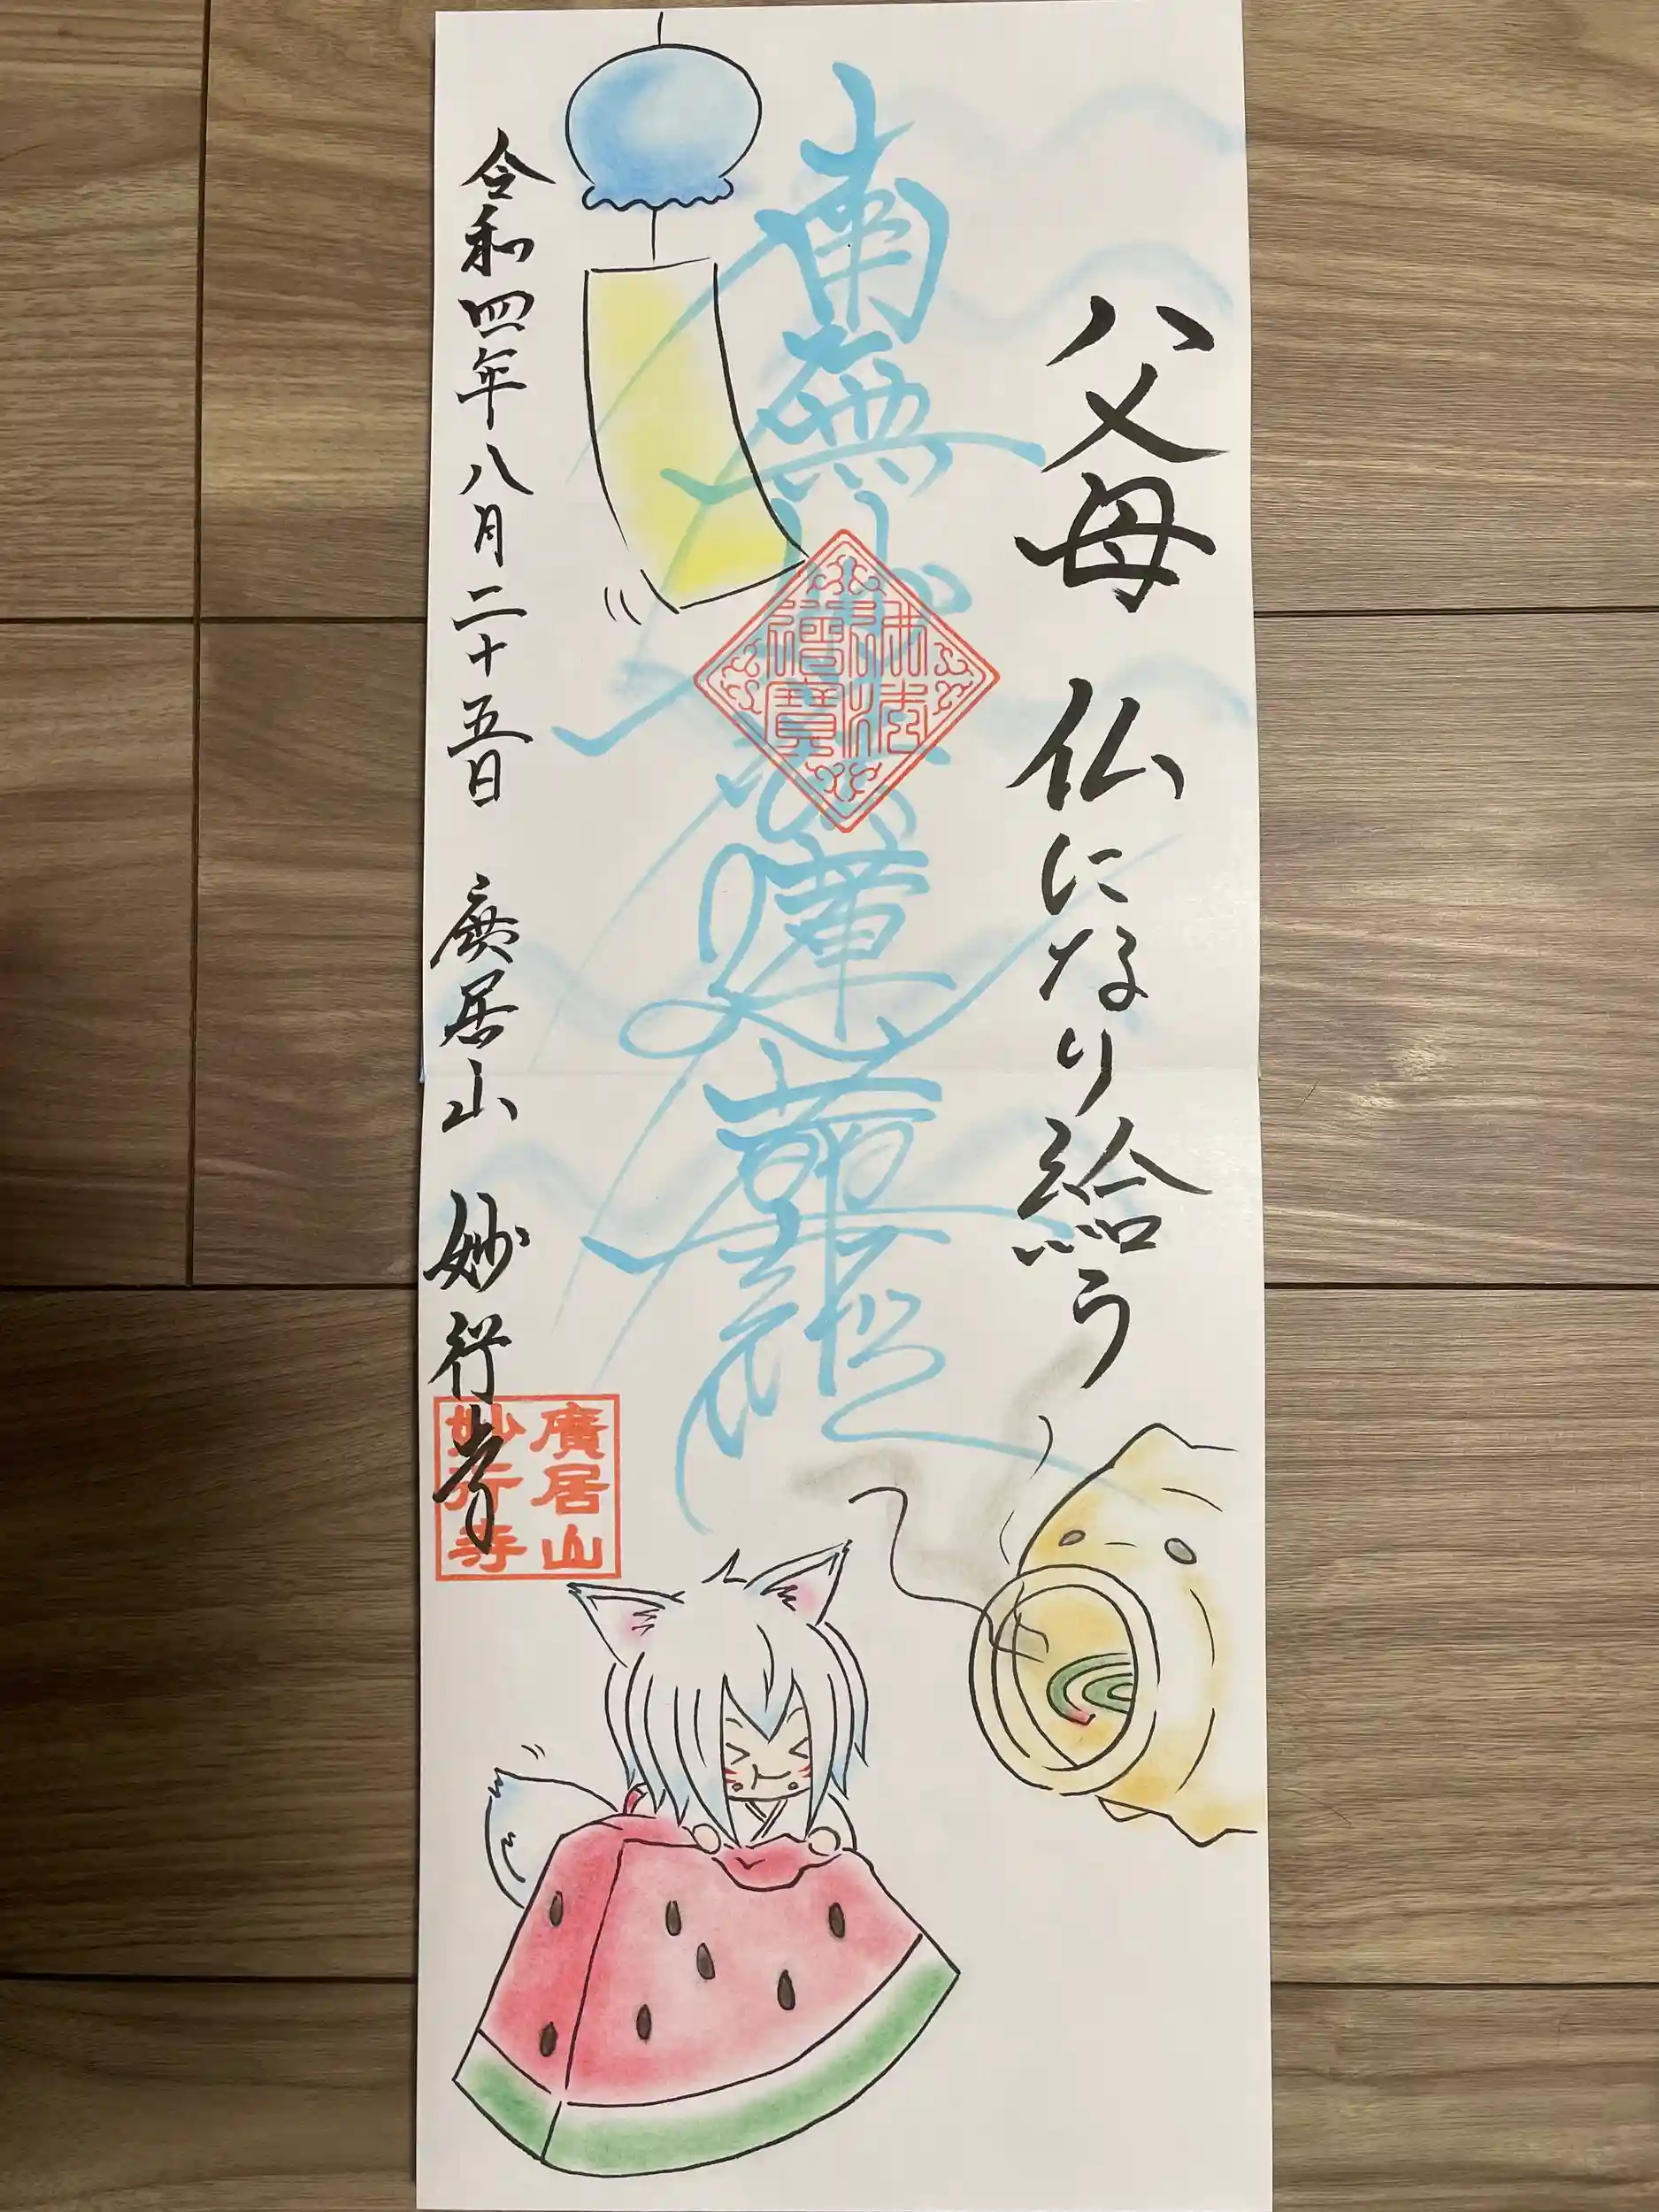 父母 仏になり給う
南無妙法蓮華經
佛法
僧寶
令和四年八月二十五日 廣居山 妙行寺
廣居山
妙行寺